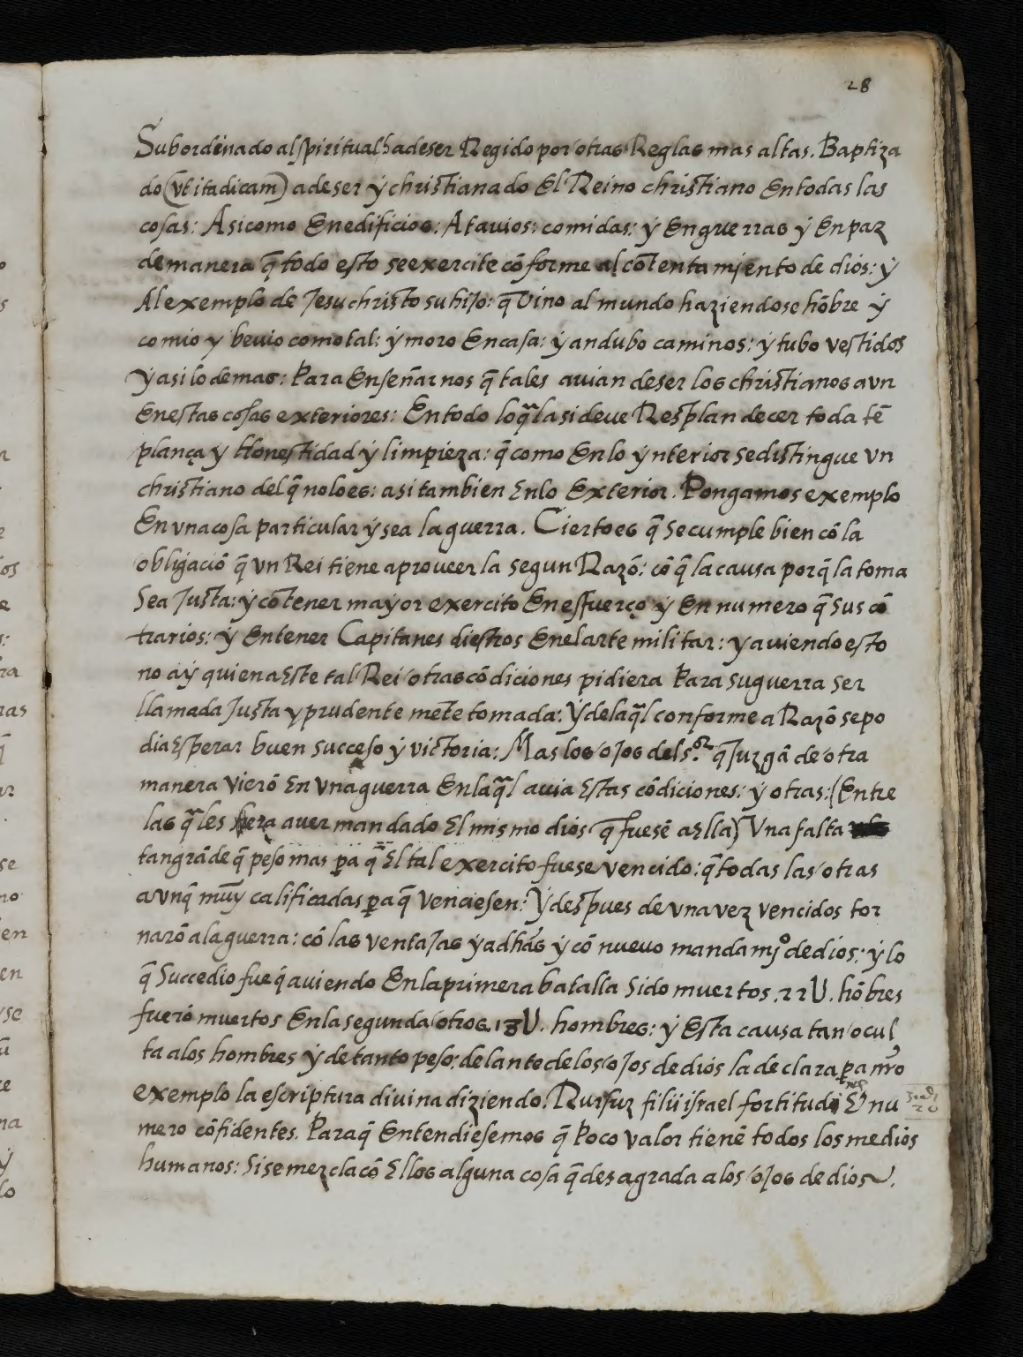 28
Subordenado al spiritual ha de ser Regido por otras Reglas mas altas. Baptiza
do (vt ita dicam) a de ser ÿ christianado El Reino christiano En todas las
cosas: Asi como En edificios: Atauios: comidas: ÿ En guerras ÿ En paz
de manera q̃ todo esto se exercite cõforme al cõtentamiento de dios: ÿ
Al exemplo de Jesu christo su hijo: q̃ vino al mundo haziendose hõbre ÿ
comio y beuio como tal: ÿ moro En casa: ÿ andubo caminos: ÿ tubo vestidos
ÿ asi lo demas: Para Enseñarnos q̃ tales auian de ser los christianos aun
En estas cosas exteriores: En todo lo q̃l asi deue Resplandecer toda tẽ
plança y Honestidad ÿ limpieza: q̃ como En lo ÿnterior se distingue vn
christiano del q̃ no lo es: asi tambien En lo Exterior. Pongamos exemplo
En vna cosa particular ÿ sea la guerra. Cierto es q̃ se cumple bien cõ la
obligaciõ q̃ vn Rei tiene a proueerla segun Razõ: cõ q̃ la causa porq̃ la toma
sea Justa: ÿ cõ tener maÿor exercito En esfuerço ÿ En numero q̃ sus cõ
trarios: ÿ En tener Capitanes diestros En el arte militar: y auiendo esto
no aÿ quien a Este tal Rei otras cõdiciones pidiera Para su guerra ser
llamada Justa y prudente mẽte tomada: ÿ de la q̃l conforme a Razõ se po
dia Esperar buen succeso ÿ victoria: Mas los ojos del s.or q̃ Juzgã de otra
manera vierõ En vna guerra En la q̃l auia Estas cõdiciones: ÿ otras: (Entre
las q̃les era auer mandado El mismo dios q̃ fuesẽ a Ella) Vna falta
tan grãde q̃ peso mas pa q̃ El tal exercito fuese vencido: q̃ todas las otras
aunq̃ muÿ calificadas pa q̃ venciesen: ÿ despues de vna vez vencidos tor
narõ a la guerra: cõ las ventajas ÿa dhãs ÿ cõ nueuo mandamjº de dios: ÿ lo
q̃ succedio fue q̃ auiendo En la primera batalla sido muertos .22U. hõbres
fuerõ muertos En la segunda otros .18U. hombres: ÿ Esta causa tan ocul
ta a los hombres ÿ de tanto peso: delante de los ojos de dios la declara pa nrõ
exemplo la escriptura diuina diziendo: Rursuz filii israel fortitudi Et nu
mero cõfidentes. Paraq̃ Entendiesemos q̃ Poco valor tienẽ todos los medios
humanos: Si se mezcla cõ Ellos alguna cosa q̃ desagrada a los ojos de dios.